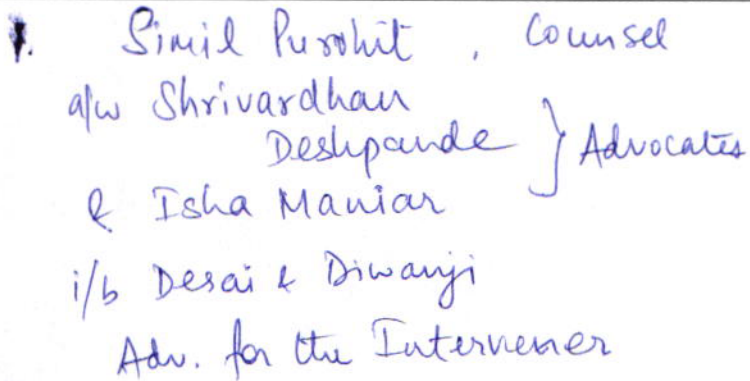 1. Simil Purohit , Counsel
a/w Shrivardhan
Deshpande } Advocates
& Isha Maniar
i/b Desai & Diwanji
Adv. for the Intervener